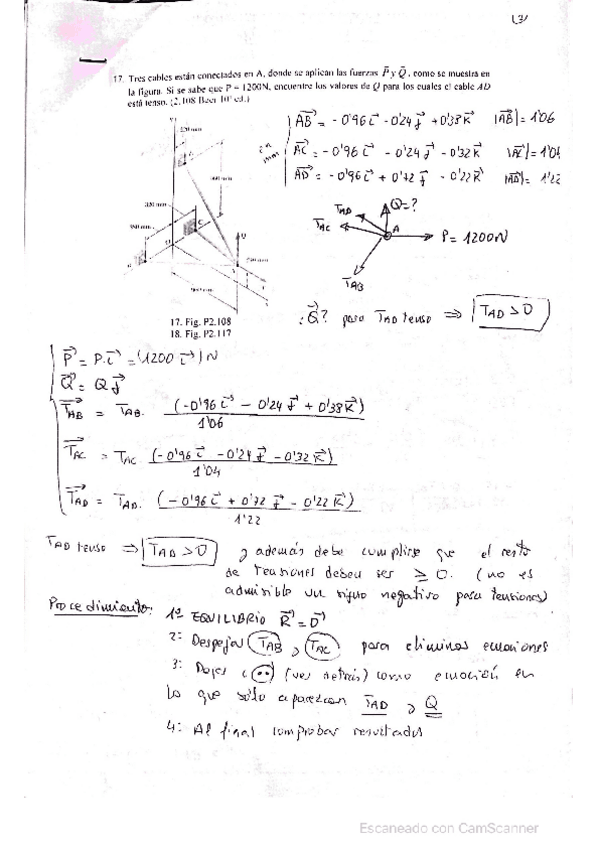 (3)
17. Tres cables están conectados en A, donde se aplican las fuerzas P y Q, como se muestra en
la figura. Si se sabe que P = 1200N, encuentre los valores de Q para los cuales el cable AD
está tenso. (2.108 Beer 10ª ed.)
AB = - 0'96 i - 0'24 j + 0'38 k |AB| = 1'06
AC = - 0'96 i - 0'24 j - 0'32 k |AC| = 1'04
AD = - 0'96 i + 0'72 j - 0'22 k |AD| = 1'22
TAD Q=?
TAC A P = 1200N
TAB
17. Fig. P2.108
18. Fig. P2.117
¿Q? para TAD tenso ⇒ TAD > 0
P = P·i = (1200 i) N
Q = Q j
TAB = TAB · (-0'96 i - 0'24 j + 0'38 k) / 1'06
TAC = TAC (-0'96 i - 0'24 j - 0'32 k) / 1'04
TAD = TAD · (-0'96 i + 0'72 j - 0'22 k) / 1'22
TAD tenso ⇒ TAD > 0 y además debe cumplirse que el resto
de tensiones deben ser ≥ 0. (no es
admisible un signo negativo para tensiones)
Procedimiento: 1º EQUILIBRIO R = 0
2: Despejar TAB y TAC para eliminar ecuaciones
3: Dejar (ver detrás) como ecuación en
la que sólo aparezcan TAD y Q
4: Al final comprobar resultados
Escaneado con CamScanner